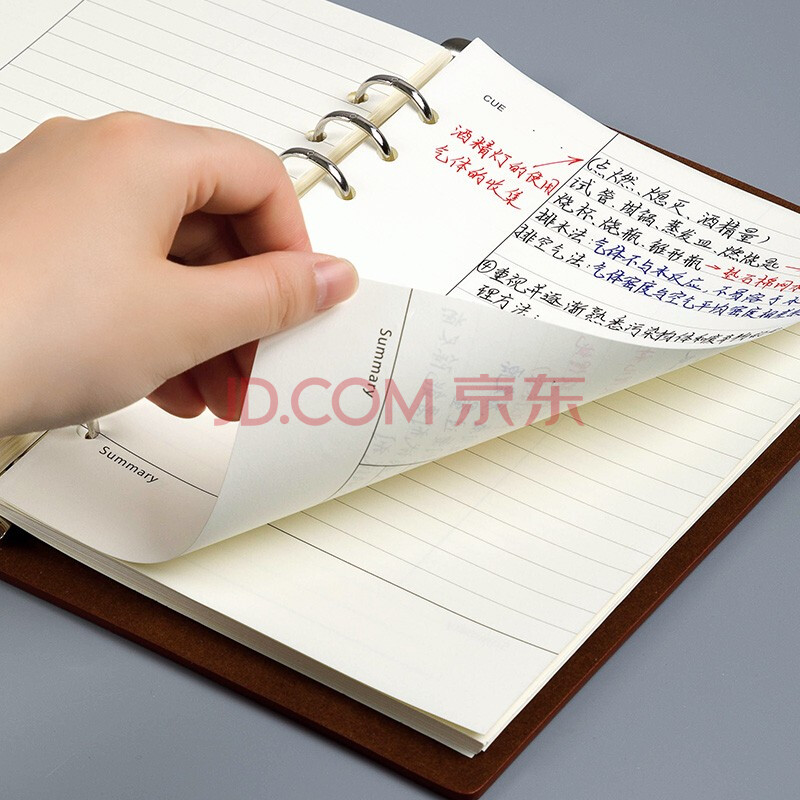 CUE
酒精灯的使用
气体的收集
(点燃、熄灭、酒精量)
试管、坩埚、蒸发皿、燃烧匙
烧杯、烧瓶、锥形瓶→垫石棉网
排水法:气体不与水反应,不易溶于水
排空气法:气体密度与空气平均密度相差
④重视并逐渐熟悉污染物
理方法:
Summary
JD.COM 京东
Summary